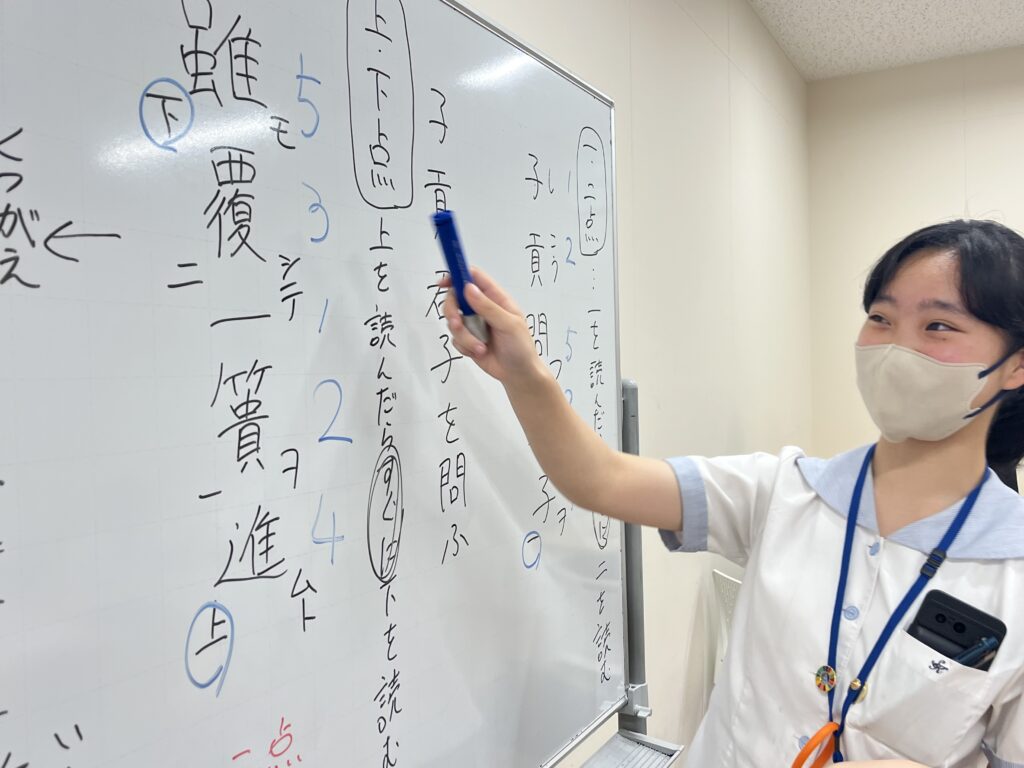 一・二点…一を読んだ 二を読む
1 2 5
しこう
子貢問 子ヲ一
子貢君子を問ふ
上・下点 上を読んだらすぐに下を読む
5 3 1 2 4
雖モ下覆シテ二一簣ヲ一進ムト上
くつがえ
一点